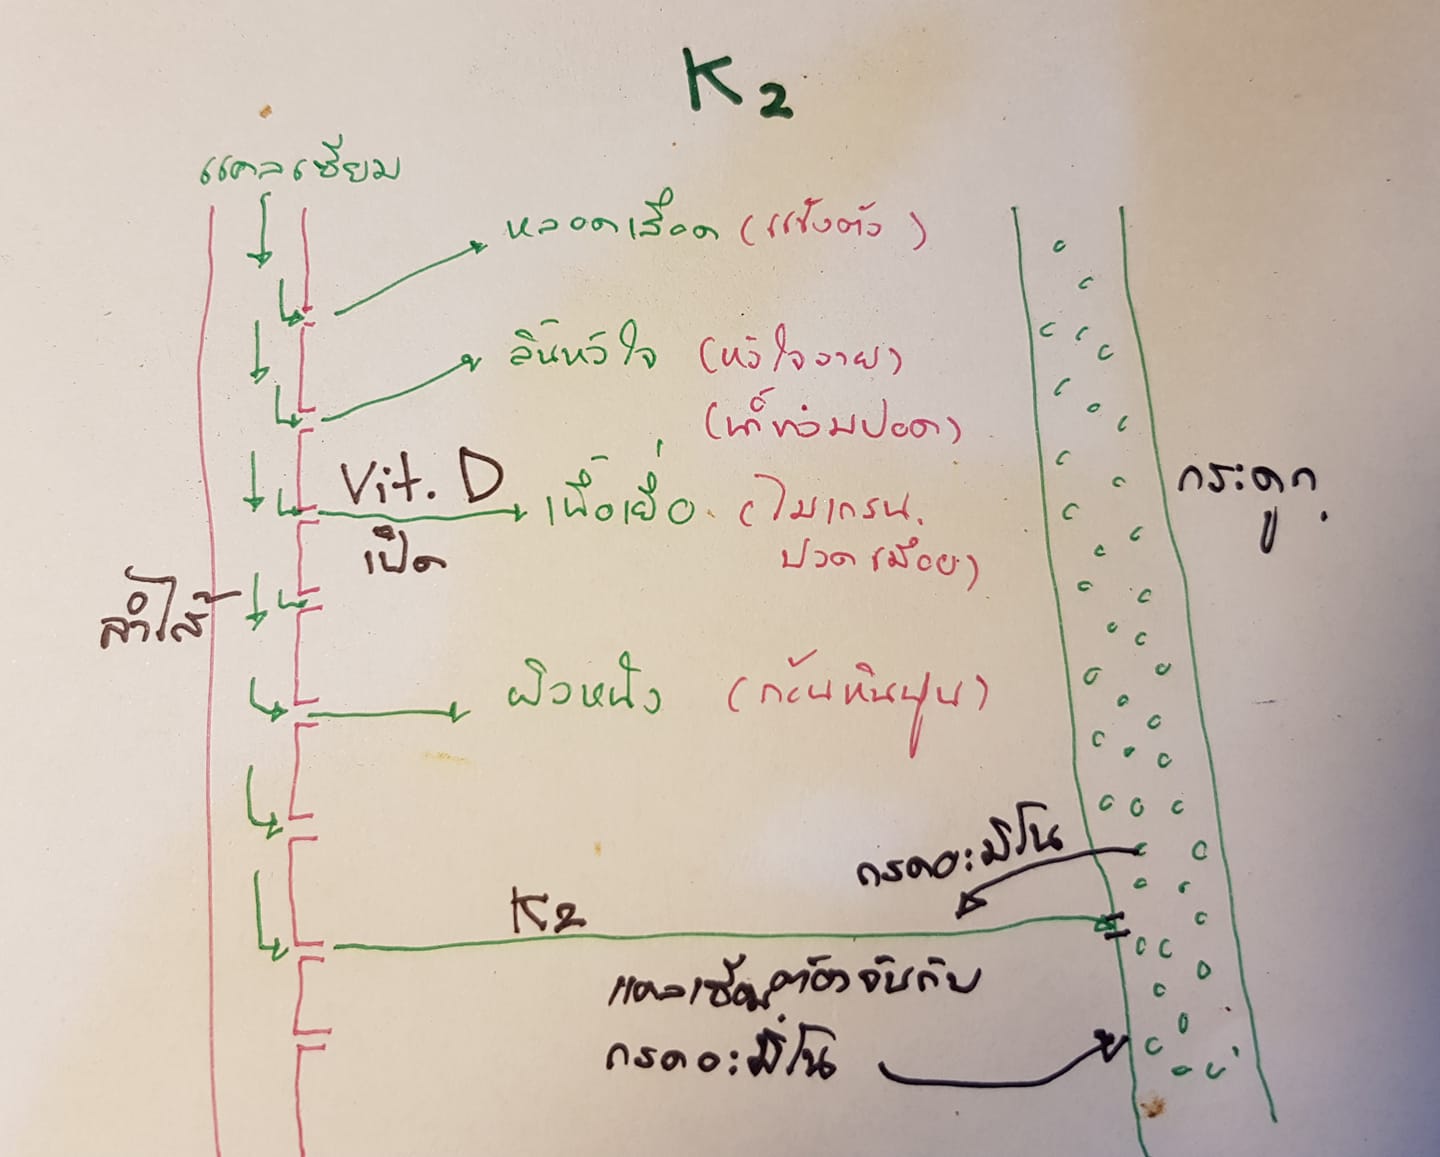 K2
แคลเซียม
หลอดเลือด (แข็งตัว)
ลิ้นหัวใจ (หัวใจวาย)
(น้ำท่วมปอด)
Vit. D
เปิด
เนื้อเยื่อ (ไมเกรน.
ปวดเมื่อย)
กระดูก
ลำไส้
ผิวหนัง (ก้อนหินปูน)
กรดอะมิโน
K2
แคลเซียมต้องจับกับ
กรดอะมิโน